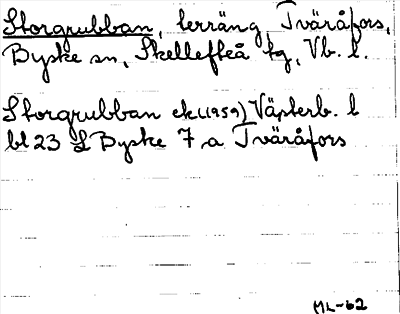 Storgrubban, terräng, Tväråfors,
Byske sn, Skellefteå tg, Vb. l.
Storgrubban ek (1959) Västerb. l
bl 23 L Byske 7 a Tväråfors
ML-62